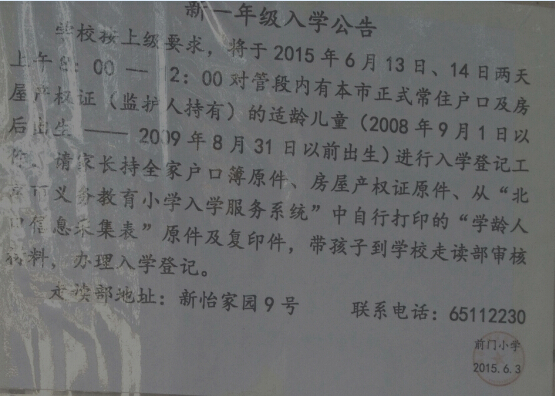 新一年级入学公告
学校按上级要求，将于2015年6月13日、14日两天
上午8：00—12：00对管段内有本市正式常住户口及房
屋产权证（监护人持有）的适龄儿童（2008年9月1日以
后出生——2009年8月31日以前出生）进行入学登记工
作。请家长持全家户口簿原件、房屋产权证原件、从“北
义务教育小学入学服务系统”中自行打印的“学龄人
口信息采集表”原件及复印件，带孩子到学校走读部审核
材料、办理入学登记。
走读部地址：新怡家园9号 联系电话：65112230
前门小学
2015.6.3